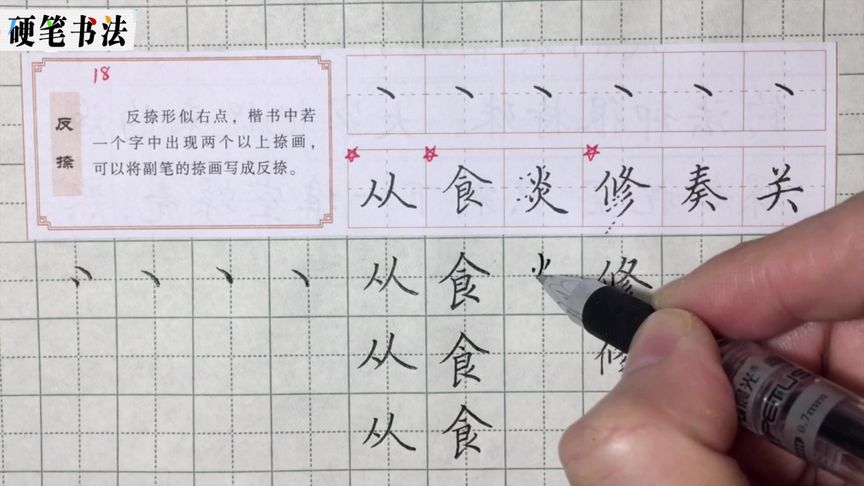 硬笔书法
18
反捺
反捺形似右点，楷书中若
一个字中出现两个以上捺画，
可以将副笔的捺画写成反捺。
从食淡修奏关
从食 修
从食 修
从食
晨光®
0.7mm